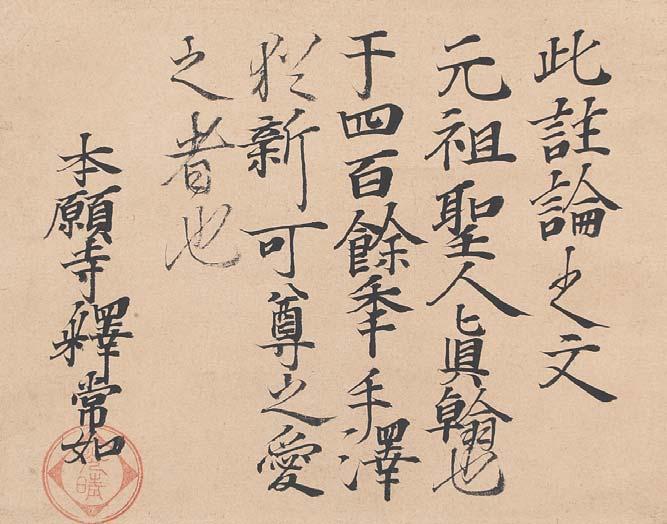 此註論之文
元祖聖人眞翰也
于四百餘年手澤
猶新可尊之愛
之者也
本願寺釋常如